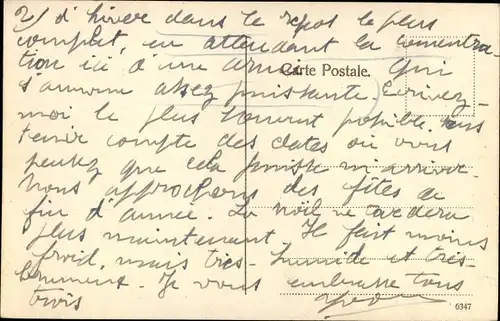 2/ d'hiver dans le repos le plus
complet, en attendant la concentra-
tion ici d'une armée qui
Carte Postale.
s'annonce assez puissante) Ecrivez-
moi le plus souvent possible, sans
tenir compte des dates où vous
pensez que cela puisse m'arriver.
Nous approchons des fêtes de
fin d'année. La Noël ne tardera
plus maintenant. Il fait moins
froid, mais très humide et très
Je vous embrasse tous
trois
6347